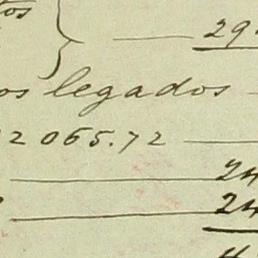 tos
29
os legados
2065.72
24
24